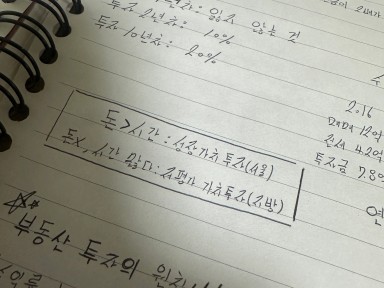 년차: 잃고 않는 것
투자 2년차: 10%
투자 10년차: 20%
돈 > 시간 : 성장가치 투자(서울)
돈X, 시간 많다 : 저평가 가치투자(지방)
부동산 투자의 원칙
2016
매매 12억
전세 4.2억
투자금 7.8억